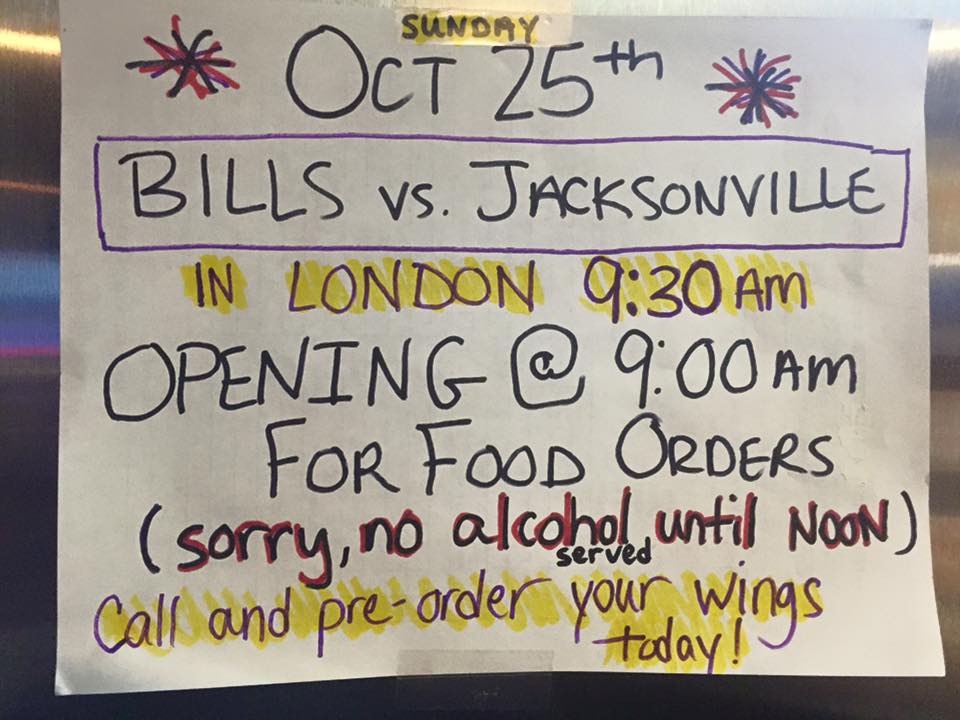 SUNDAY
OCT 25th
BILLS VS. JACKSONVILLE
IN LONDON 9:30 AM
OPENING @ 9:00 AM
FOR FOOD ORDERS
(sorry, no alcohol served until NOON)
Call and pre-order your wings
today!